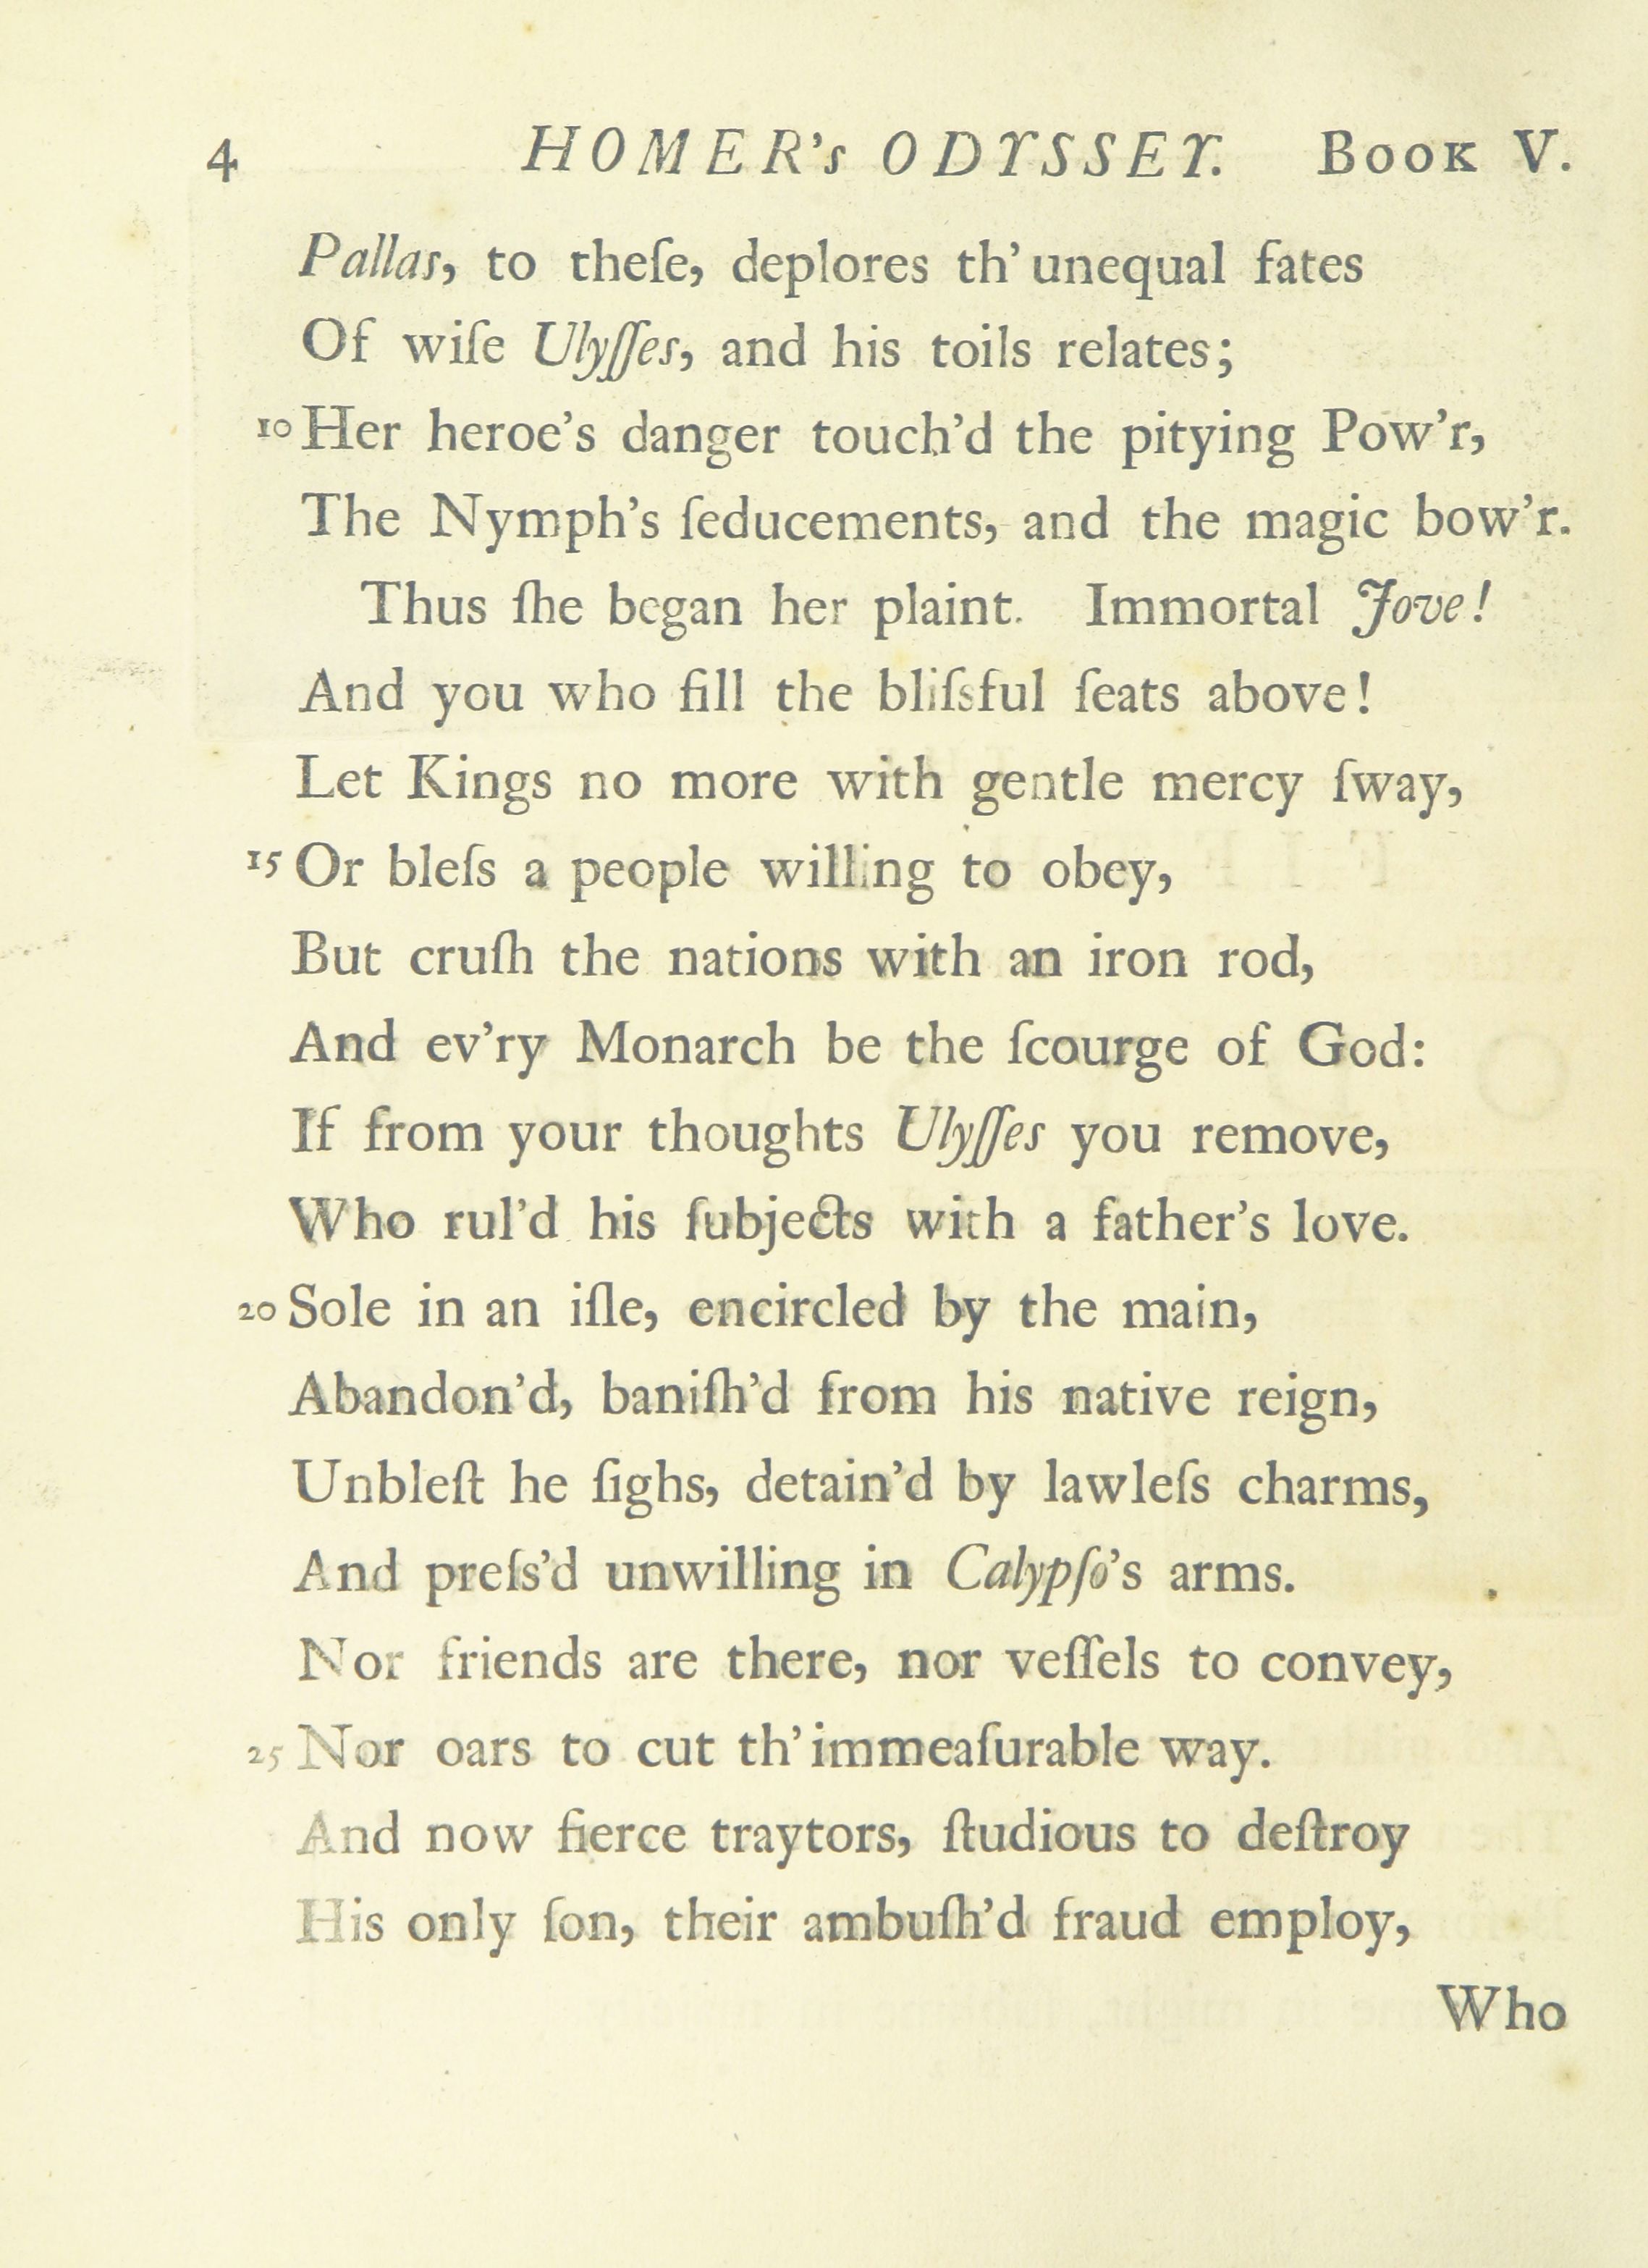 4 HOMER's ODYSSEY. BOOK V.
Pallas, to theſe, deplores th' unequal fates
Of wiſe Ulyſſes, and his toils relates;
10 Her heroe's danger touch'd the pitying Pow'r,
The Nymph's ſeducements, and the magic bow'r.
Thus ſhe began her plaint. Immortal Jove!
And you who fill the bliſsful ſeats above!
Let Kings no more with gentle mercy ſway,
15 Or bleſs a people willing to obey,
But cruſh the nations with an iron rod,
And ev'ry Monarch be the ſcourge of God:
If from your thoughts Ulyſſes you remove,
Who rul'd his ſubjects with a father's love.
20 Sole in an iſle, encircled by the main,
Abandon'd, baniſh'd from his native reign,
Unbleſt he ſighs, detain'd by lawleſs charms,
And preſs'd unwilling in Calypſo's arms.
Nor friends are there, nor veſſels to convey,
25 Nor oars to cut th' immeaſurable way.
And now fierce traytors, ſtudious to deſtroy
His only ſon, their ambuſh'd fraud employ,
Who